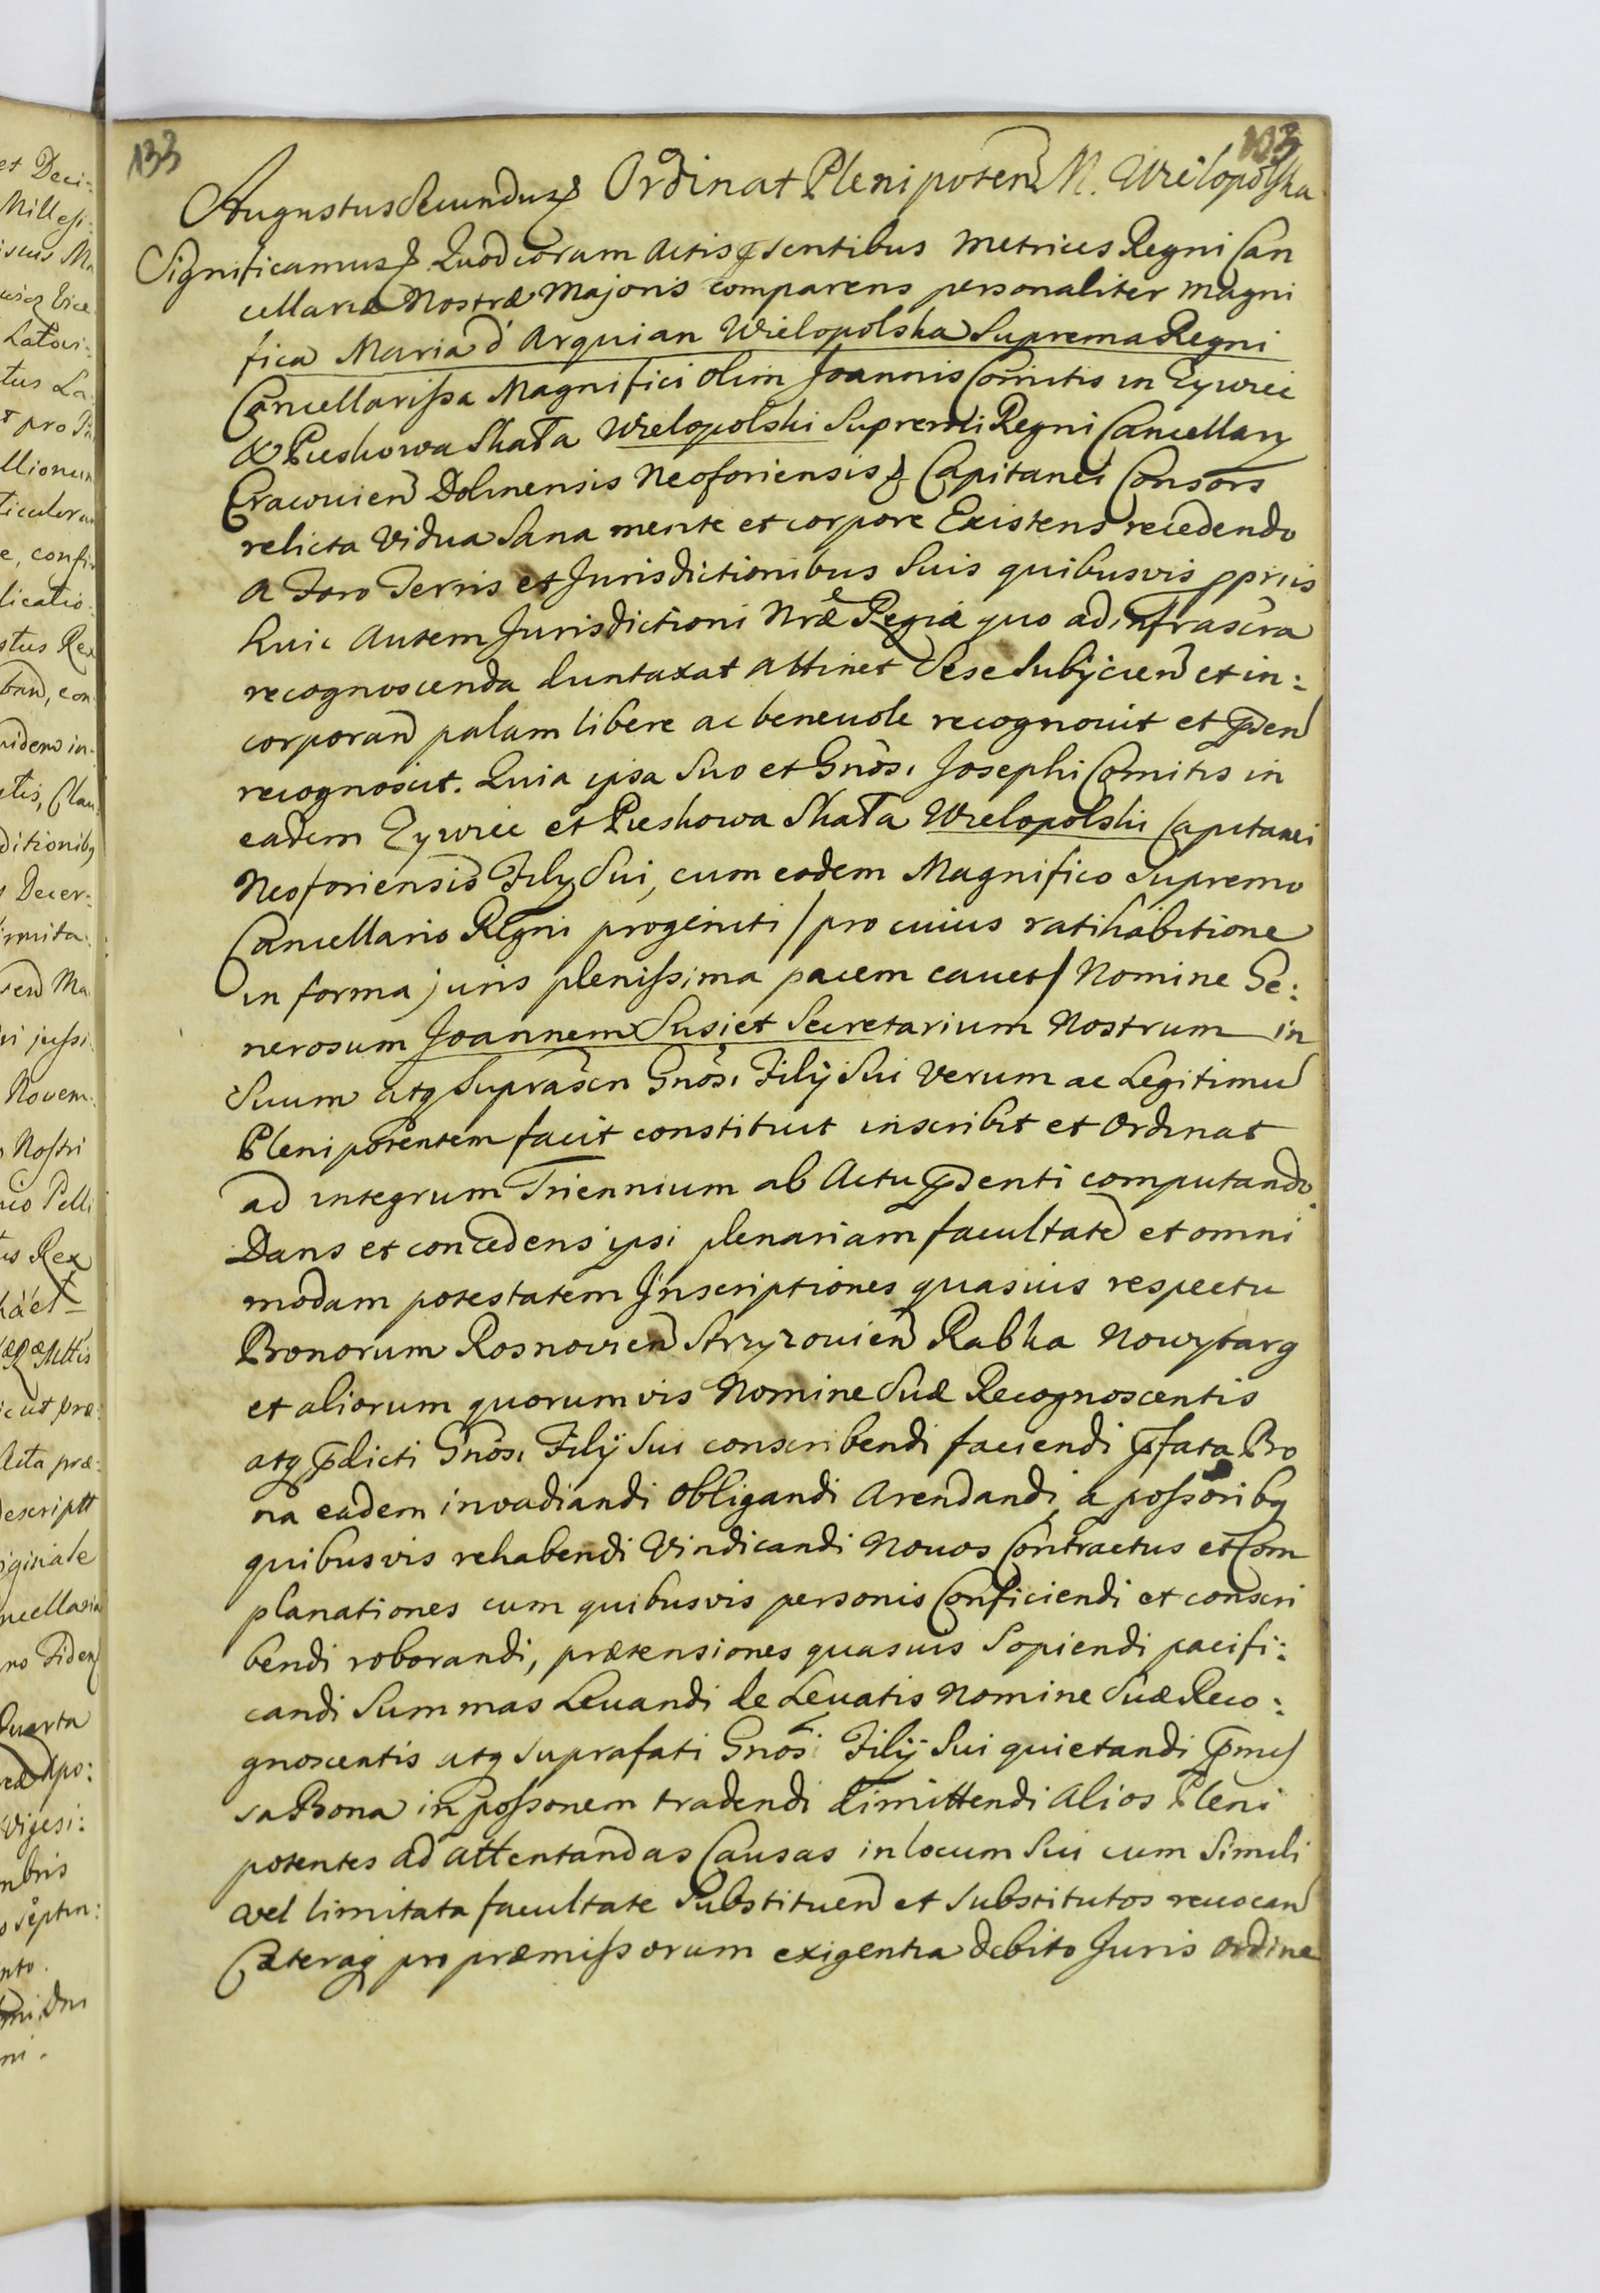 133
103
Ordinat Plenipoten M. Wielopolska
Augustus Secundus
Significamus Quod coram Actis psentibus Metrices Regni Can
cellariæ Nostræ Majoris comparens personaliter Magni
fica Maria d'Arquian Wielopolska Suprema Regni
Cancellarissa Magnifici olim Joannis Comitis in Zywiec
& Pieskowa Skała Wielopolski Supremi Regni Cancellarij
Cracouien Dolinensis Neoforiensis Capitanei Consors
relicta Vidua Sana mente et corpore Existens recedendo
a Foro Terris et Jurisdictionibus Suis quibusvis ppriis
huic autem Jurisdictioni Nræ Regiæ quo ad infrascra
recognoscenda duntaxat attinet Sese Subijcien et in:
corporan palam libere ac beneuole recognouit et psen
recognoscit. Quia ipsa Suo et Gnosi Josephi Comitis in
eadem Zywiec et Pieskowa Skała Wielopolski Capitanei
Neoforiensis Filij Sui, cum eodem Magnifico Supremo
Cancellario Regni progeniti / pro cuius ratihabitione
in forma juris plenissima pacem cauet / Nomine Ge:
nerosum Joannem Susiet Secretarium Nostrum in
Suum atq suprascri Gnosi Filij Sui Verum ac Legitimu
Plenipotentem facit constituit inscribit et Ordinat
ad integrum Triennium ab Actu psenti computando
Dans et concedens ipsi plenariam facultate et omni
modam potestatem Inscriptiones quasuis respectu
Bonorum Rosnovien Strzyzouien Rabka Nowytarg
et aliorum quorumvis Nomine Suæ Recognoscentis
atq pdicti Gnosi Filij Sui conscribendi faciendi pfata Bo
na eadem invadiandi Obligandi Arendandi a possoribq
quibusvis rehabendi Vindicandi Nouos Contractus et Com
planationes cum quibusvis personis Conficiendi et conscri
bendi roborandi, prætensiones quasuis Sopiendi pacifi:
candi Summas Leuandi de Leuatis Nomine Suæ Reco:
gnoscentis atq suprafati Gnosi Filij Sui quietandi pmis
sa Bona in possonem tradendi dimittendi Alios Pleni
potentes ad attentandas Causas in locum Sui cum Simili
vel limitata facultate Substituen et Substitutos reuocan
Cæteraq pro præmissorum exigentia debito Juris ordine